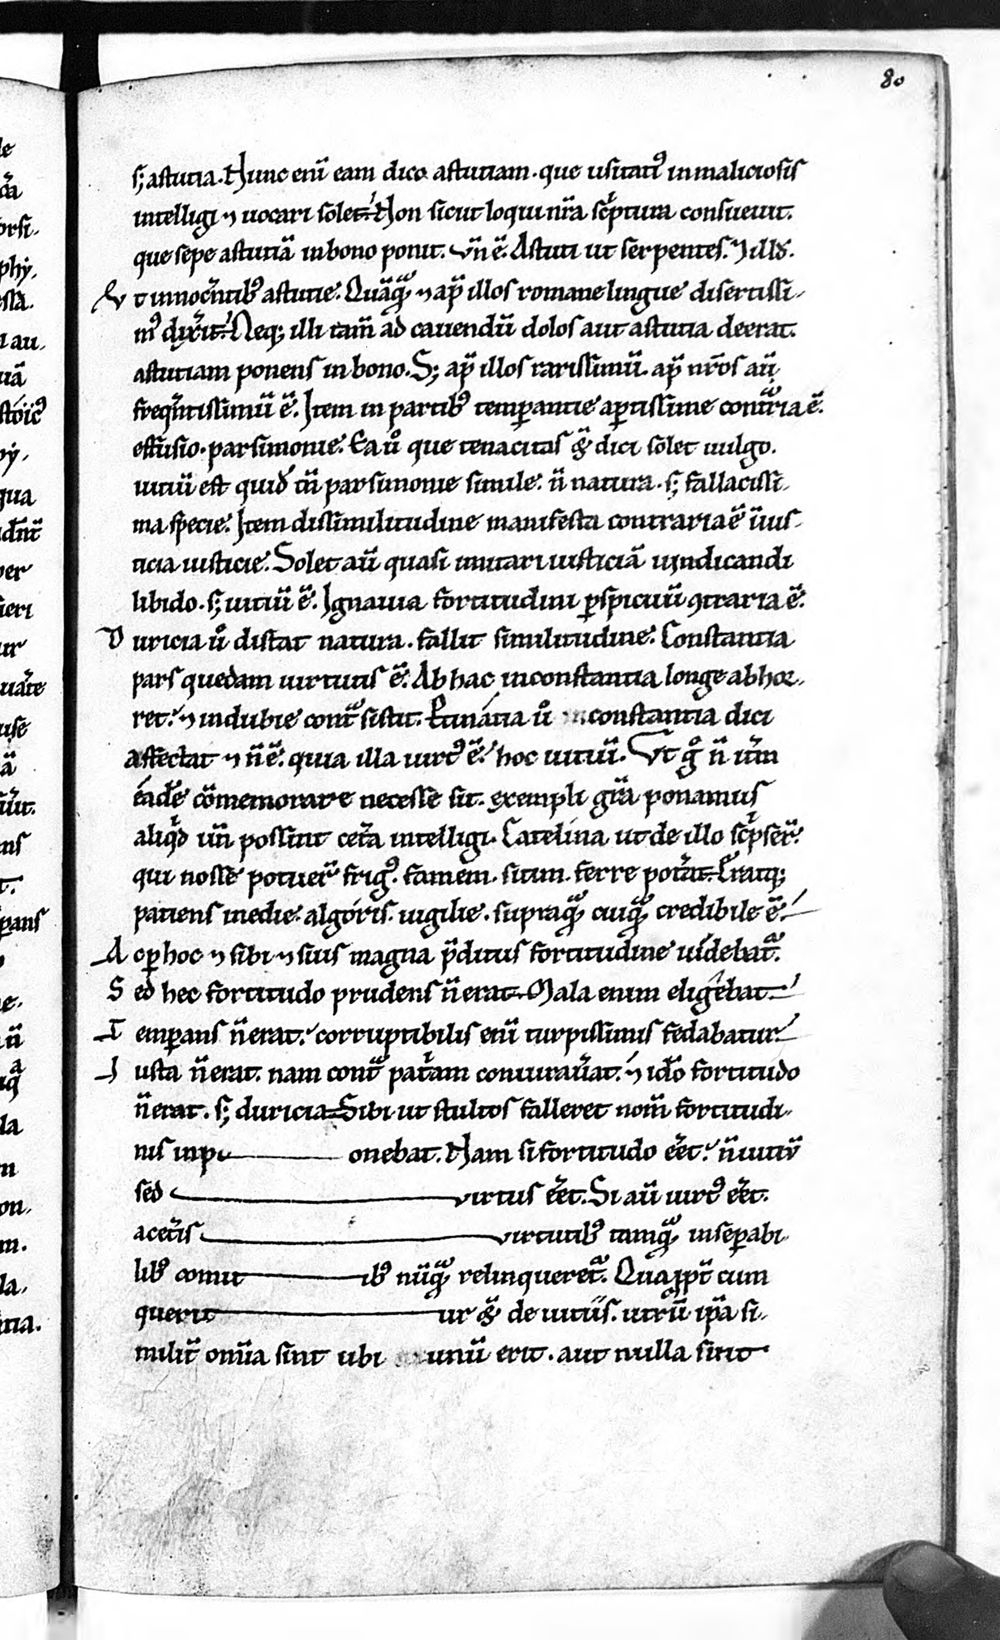 80
s; astutia. Nunc eni̅ eam dico astutiam. que usitati᷒ in maliciosis
intelligi ⁊ uocari solet. Non sicut loqui nr̅a sc̅ptura consueuit.
que sepe astutia̅ in bono ponit. vn̅ e̅. Astuti ut serpentes. ⁊ illd̅.
Vt innoce̅tib᷒ astutie. Qua̅qͣ ⁊ ap̅ illos romane lingue disertissi-
m᷒ dixe̅it. Neq; illi tam̅ ad cauendu̅ dolos aut astutia deerat.
astutiam ponens in bono. S; ap̅ illos rarissimu̅. ap̅ nr̅os au̅
freq̅ntissimu̅ e̅. Item in partib᷒ temp̲antie ap̲tissime contͣria e̅.
effusio. parsimonie. Ea ů que tenacitas qͣ dici solet uulgo.
uitiu̅ est quid̅ tn̅ parsimonie simile. n̅ natura. s; fallacissi-
ma specie. Item dissimilitudine manifesta contraria e̅ iniˈus-
ticia iusticie. Solet au̅ quasi imitari iusticia̅ uindicandi
libido. s; uitiu̅ e̅. Ignauia fortitudini p̲spicuu̅ ꝯtraria e̅.
Duricia ů distat natura. fallit similitudine. Constantia
pars quedam uirtutis e̅. Ab hac inconstantia longe abhor-
ret. ⁊ indubie contͣ sistit. Ptinatia ů constantia dici
affectat ⁊ n̅ e̅. quia illa uirt᷒ e̅. hoc uitiu̅. Vt g̊ n̅ it̅m
eade̅ co̅memorare necesse sit. exempli gr̅a ponamus
aliqͦd un̅ possint cet̅a intelligi. Catelina ut de illo sc̅pser̅.
qui nosse potuer̅ frig᷒. famem. sitim. ferre pot̅at. Eratq;
patiens inedie. algoris. uigilie. supraqͣ cuiqͣ credibile e̅.
Ac p̲ hoc ⁊ sibi ⁊ suis magna p̅ditus fortitudine uidebatͣ.
Sed hec fortitudo prudens n̅ erat. Mala enim eligebat.
Temp̲ans n̅ erat. corruptibilis eni̅ turpissimis fedabatur.
Iusta n̅ erat. nam contͣ pat̅am coniurau̅at. ⁊ id̅o fortitudo
n̅ erat. s; duricia. Sibi ut stultos falleret nom̅ fortitudi-
nis inp onebat. Nam si fortitudo ee̅t. n̅ uitiu̅
sed virtus ee̅t. Si au̅ uirt᷒ ee̅t.
a cet̅is virtutib᷒ tamqͣ insep̲abi-
lib᷒ comit ib᷒ nu̅qͣ relinqueretͣ. Qua p̅pt̅ cum
querit ur qͣ de uitiis. utru̅ ip̅a si-
milit̅ om̅ia sint ubi unu̅ erit. aut nulla sint